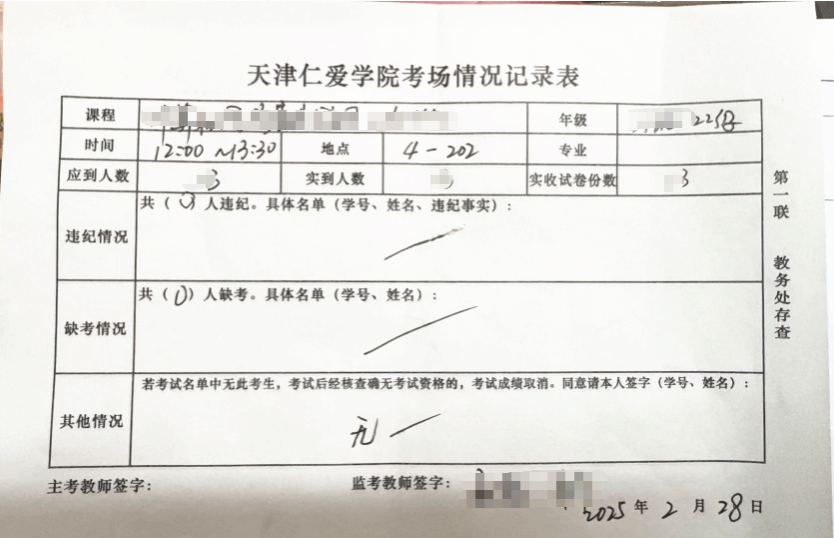 天津仁爱学院考场情况记录表
课程 年级 22级
时间 12:00 ~13:30 地点 4-202 专业
应到人数 3 实到人数 3 实收试卷份数 3
违纪情况 共（0）人违纪。具体名单（学号、姓名、违纪事实）：
缺考情况 共（0）人缺考。具体名单（学号、姓名）：
其他情况 若考试名单中无此考生，考试后经核查确无考试资格的，考试成绩取消。同意请本人签字（学号、姓名）：
无
主考教师签字： 监考教师签字：
2025年2月28日
第一联 教务处存查